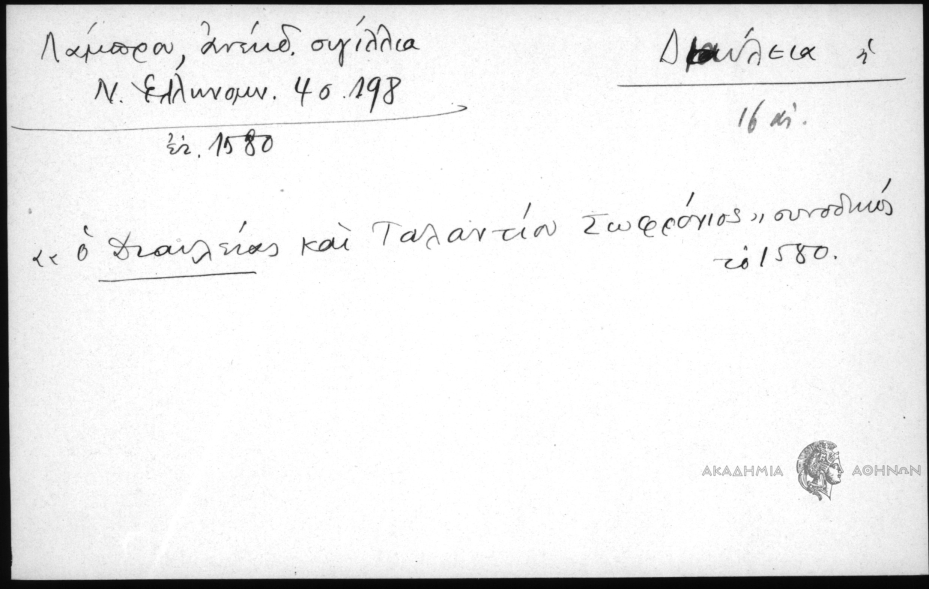 Λάμπρου, ἀνέκδ. σιγίλλια
Ν. Ἑλληνομν. 4 σ. 198
ἔτ. 1580
Διαύλεια ἡ
16 αἰ.
« ὁ Διαυλείας καὶ Ταλαντίου Σωφρόνιος » συνοδικός
τὸ 1580.
ΑΚΑΔΗΜΙΑ ΑΘΗΝΩΝ